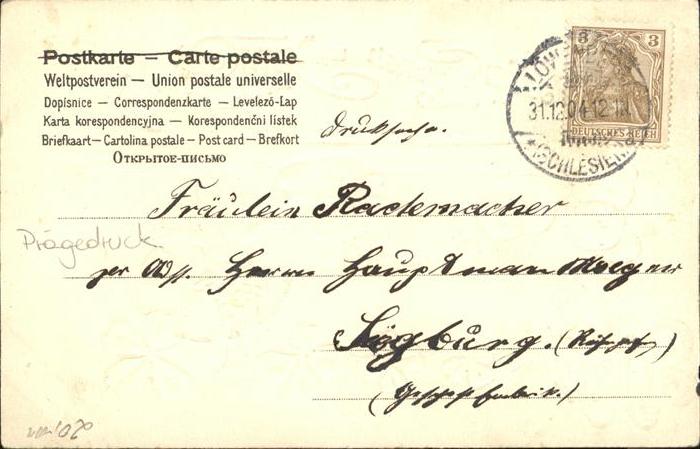 Postkarte – Carte postale
Weltpostverein — Union postale universelle
Dopisnice — Correspondenzkarte — Levelező-Lap
Karta korespondencyjna — Korespondenční lístek
Briefkaart — Cartolina postale — Post card — Brefkort
Открытое-письмо
3 3
DEUTSCHES REICH
31.12.04
(SCHLESIEN)
Drucksache.
Fräulein Rademacher
Prägedruck
per Herrn Hauptmann
Siegburg.